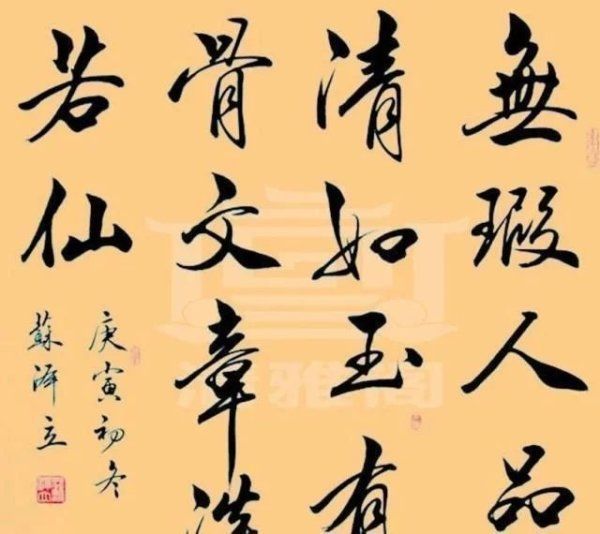 無瑕人品
清如玉有
骨文章
若仙
庚寅初冬
蘇澤立
雅阁